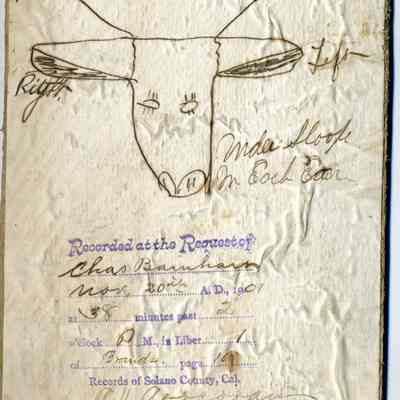 Left
Right
Under Sloope
In Each Ear
Recorded at the Request of
Chas Barnham
Nov, 20th A. D., 1901
at 38 minutes past 2
o'clock P. M., in Liber 1
of Brands page 19
Records of Solano County, Cal.